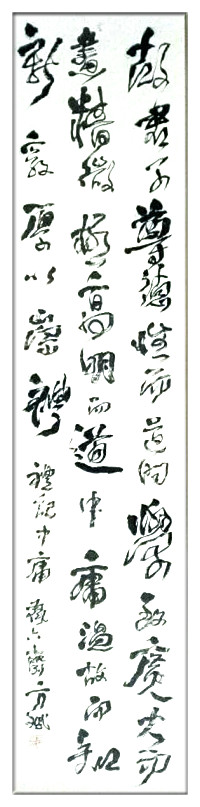 故君子尊德性而道問學致廣大而
盡精微極高明而道中庸溫故而知
新敦厚以崇禮 禮記中庸